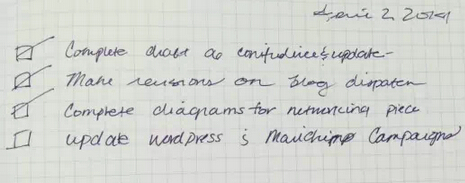 2, 2021
Complete draft update
Make revisions on blog dispatch
Complete diagrams for networking piece
update wordpress & Mailchimp Campaigns